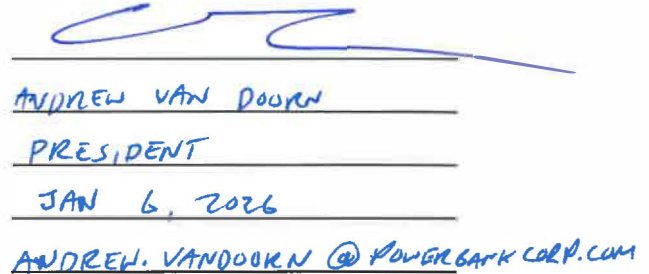 ANDREW VAN DOORN
PRESIDENT
JAN 6, 2026
ANDREW.VANDOORN@POWERBANKCORP.COM